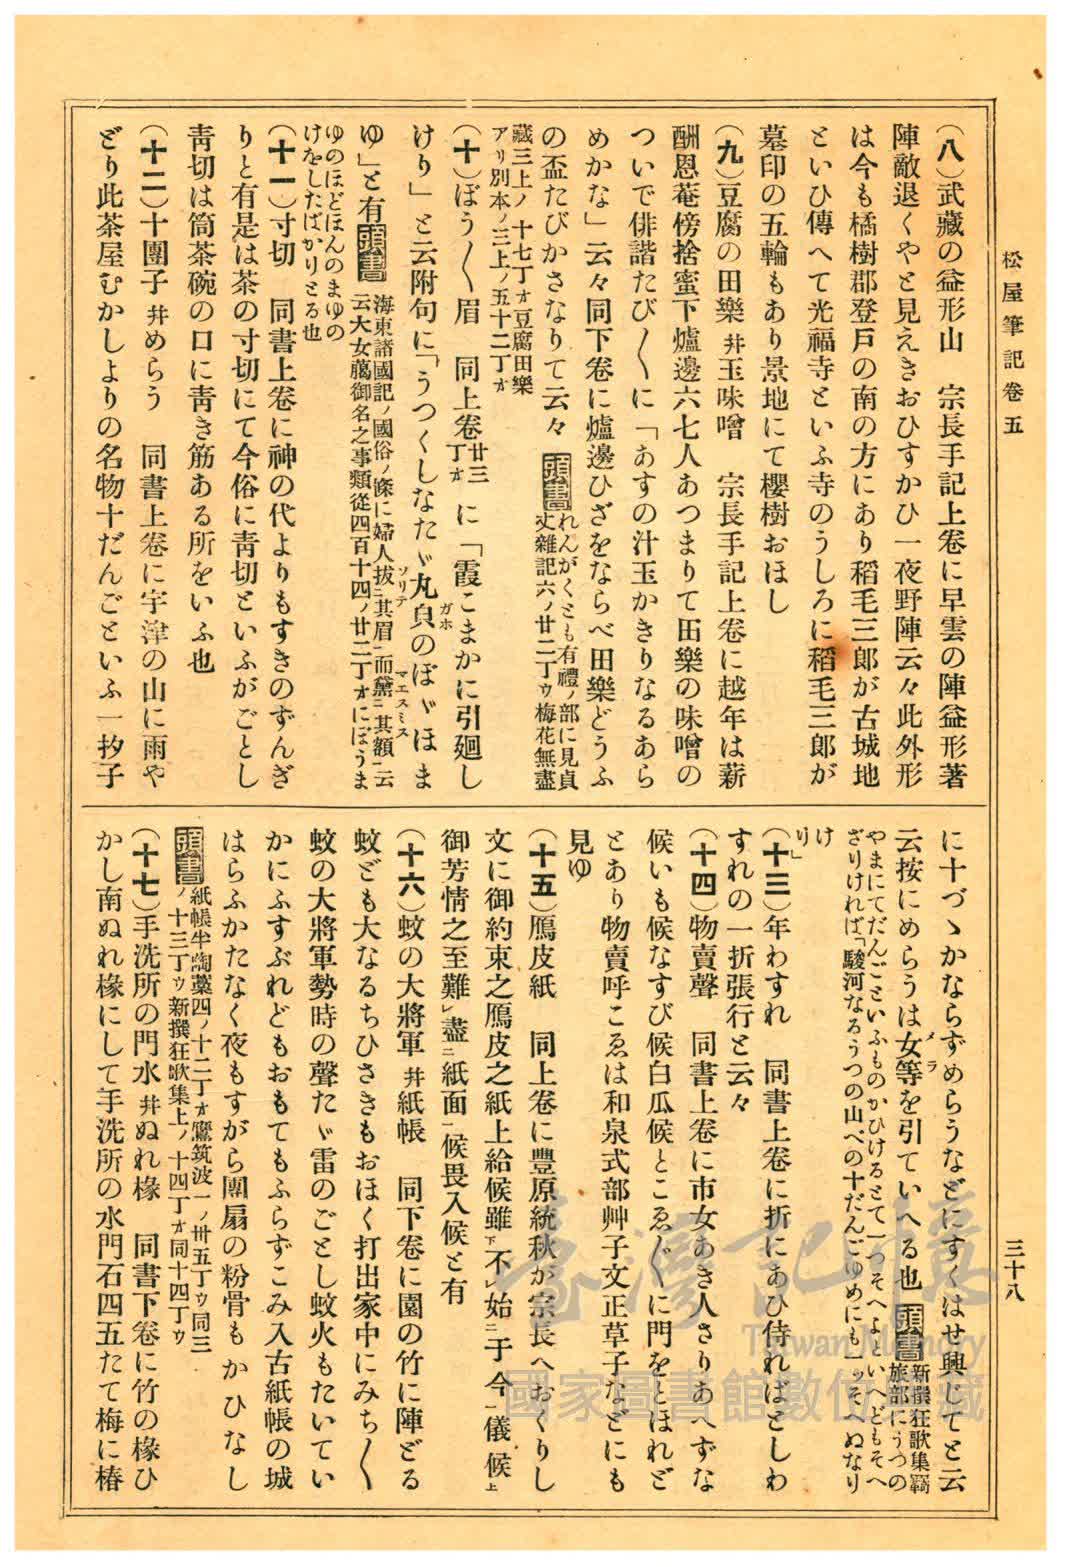 松屋筆記卷五
三十八
(八)武藏の益形山　宗長手記上卷に早雲の陣益形著
陣敵退くやと見えきおひすかひ一夜野陣云々此外形
は今も橘樹郡登戸の南の方にあり稻毛三郎が古城地
といひ傳へて光福寺といふ寺のうしろに稻毛三郎が
墓印の五輪もあり景地にて櫻樹おほし
(九)豆腐の田樂幷玉味噌　宗長手記上卷に越年は薪
酬恩菴傍捨蜜下爐邊六七人あつまりて田樂の味噌の
ついで俳諧たび〱に「あすの汁玉かきりなるあら
めかな」云々同下卷に爐邊ひざをならべ田樂どうふ
の盃たびかさなりて云々　頭書
れんがくとも有禮ノ部に見貞
丈雜記六ノ廿二丁ウ梅花無盡
藏三上ノ十七丁オ豆腐田樂
アリ別本ノ三上ノ五十二丁オ
(十)ぼう〱眉　同上卷廿三丁オに「霞こまかに引廻し
けり」と云附句に「うつくしなたゞ丸㒵のぼゞほま
ソリテ　ガホ　マエスミス
ゆ」と有頭書
海東諸國記ノ國俗ノ條に婦人拔二其眉一而黛二其額一云
云大女﨟御名之事類從四百十四ノ廿二丁オにぼうま
ゆのほどほんのまゆの
けをしたばかりとる也
(十一)寸切　同書上卷に神の代よりもすきのずんぎ
りと有是は茶の寸切にて今俗に靑切といふがごとし
靑切は筒茶碗の口に靑き筋ある所をいふ也
(十二)十團子幷めらう　同書上卷に宇津の山に雨や
どり此茶屋むかしよりの名物十だんごといふ一抄子
に十づゝかならずめらうなどにすくはせ興じてと云
云按にめらうは女等を引ていへる也　頭書
メラ
新撰狂歌集羇
旅部にうつの
やまにてだんごといふものかひけるとて一つそへよといへどもそへ
ざりければ「駿河なるうつの山べの十だんごゆめにも一ッそへぬなり
け
り」
(十三)年わすれ　同書上卷に折にあひ侍ればとしわ
すれの一折張行と云々
(十四)物賣聲　同書上卷に市女あき人さりあへずな
候いも候なすび候白瓜候とこゑ〲に門をとほれど
とあり物賣呼こゑは和泉式部艸子文正草子などにも
見ゆ
(十五)鴈皮紙　同上卷に豐原統秋が宗長へおくりし
文に御約束之鴈皮之紙上給候雖下不レ始二于今一儀候上
御芳情之至難レ盡二紙面一候畏入候と有
(十六)蚊の大將軍幷紙帳　同下卷に園の竹に陣どる
蚊ども大なるちひさきもおほく打出家中にみち〱
蚊の大將軍勢時の聲たゞ雷のごとし蚊火もたいてい
かにふすぶれどもおもてもふらずこみ入古紙帳の城
はらふかたなく夜もすがら團扇の粉骨もかひなし
頭書
紙帳半陶藁四ノ十二丁オ鷹筑波一ノ卅五丁ウ同三
ノ十三丁ウ新撰狂歌集上ノ十四丁オ同十四丁ウ
(十七)手洗所の門水幷ぬれ椽　同書下卷に竹の椽ひ
かし南ぬれ椽にして手洗所の水門石四五たて梅に椿
臺灣記憶
Taiwan Memory
國家圖書館數位典藏